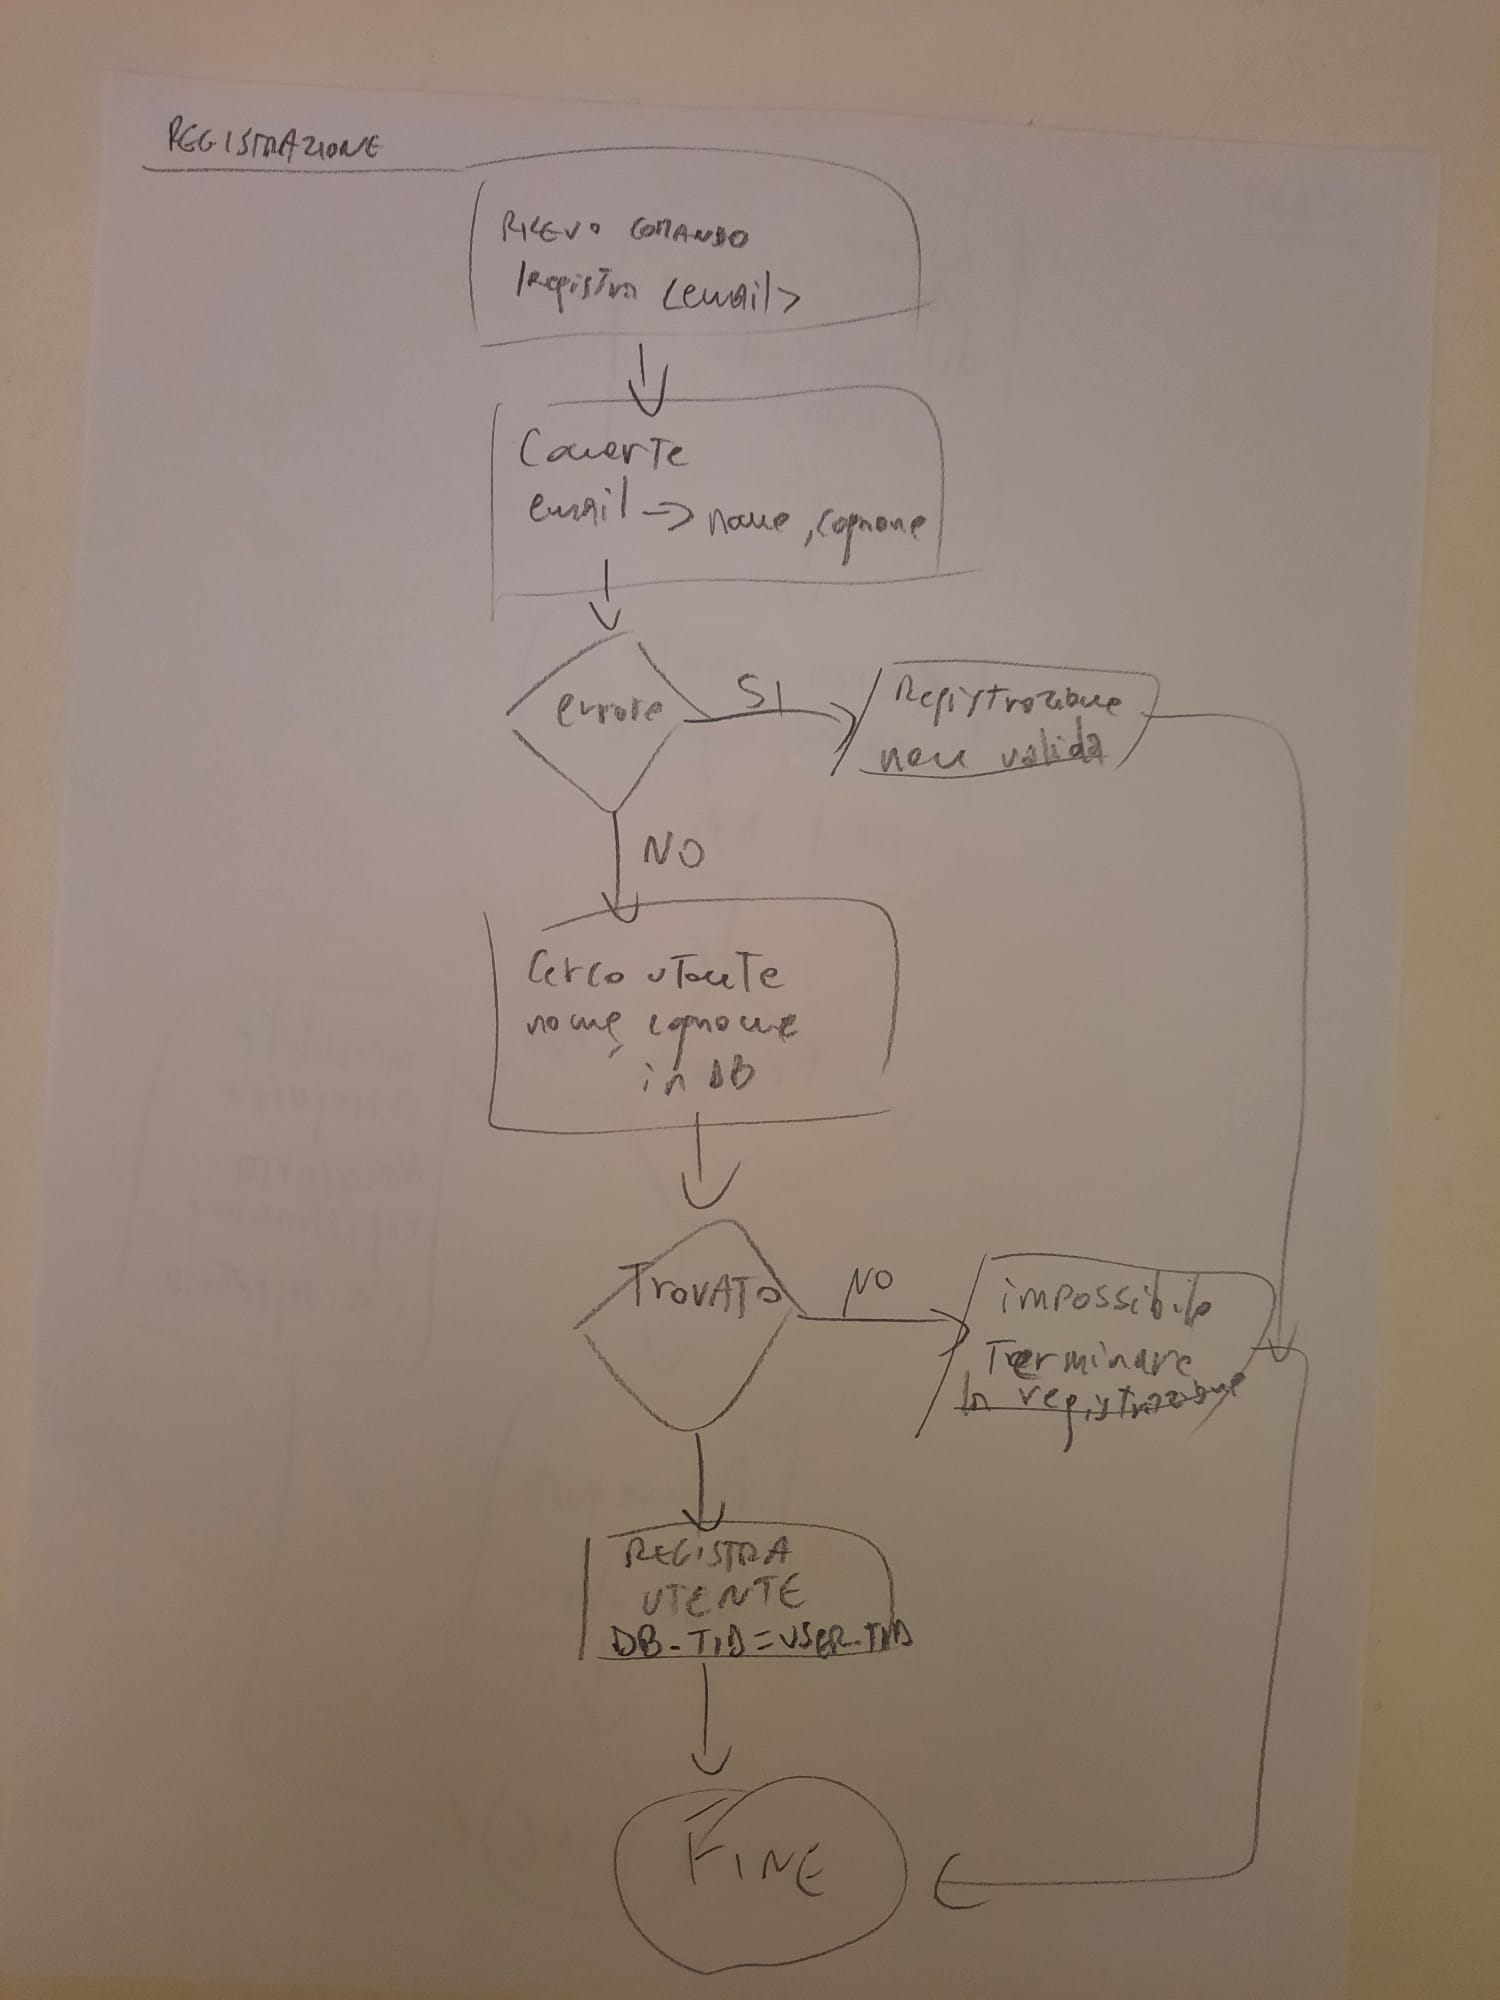 REGISTRAZIONE
RICEVO COMANDO
/registra <email>
Converte
email -> nome, cognome
errore
SI
Registrazione
non valida
NO
Cerco utente
nome, cognome
in DB
TROVATO
NO
impossibile
Terminare
la registrazione
REGISTRA
UTENTE
DB_TID = USER_TID
FINE